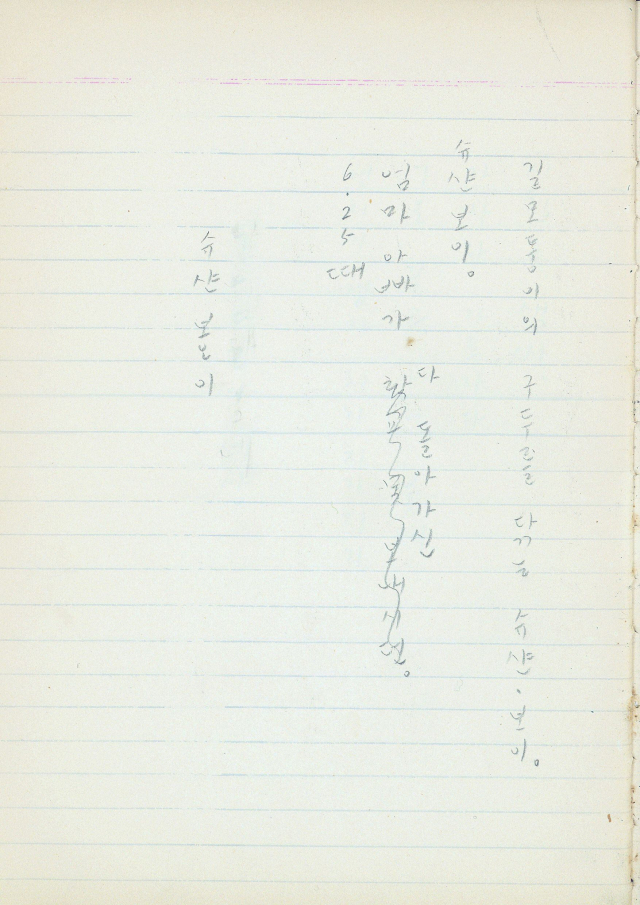 슈샨 보오이
6.25 때
엄마 아빠가
다 돌아가신
슈샨 보이。
길모퉁이의 구두를 닦는 슈샨·보이。